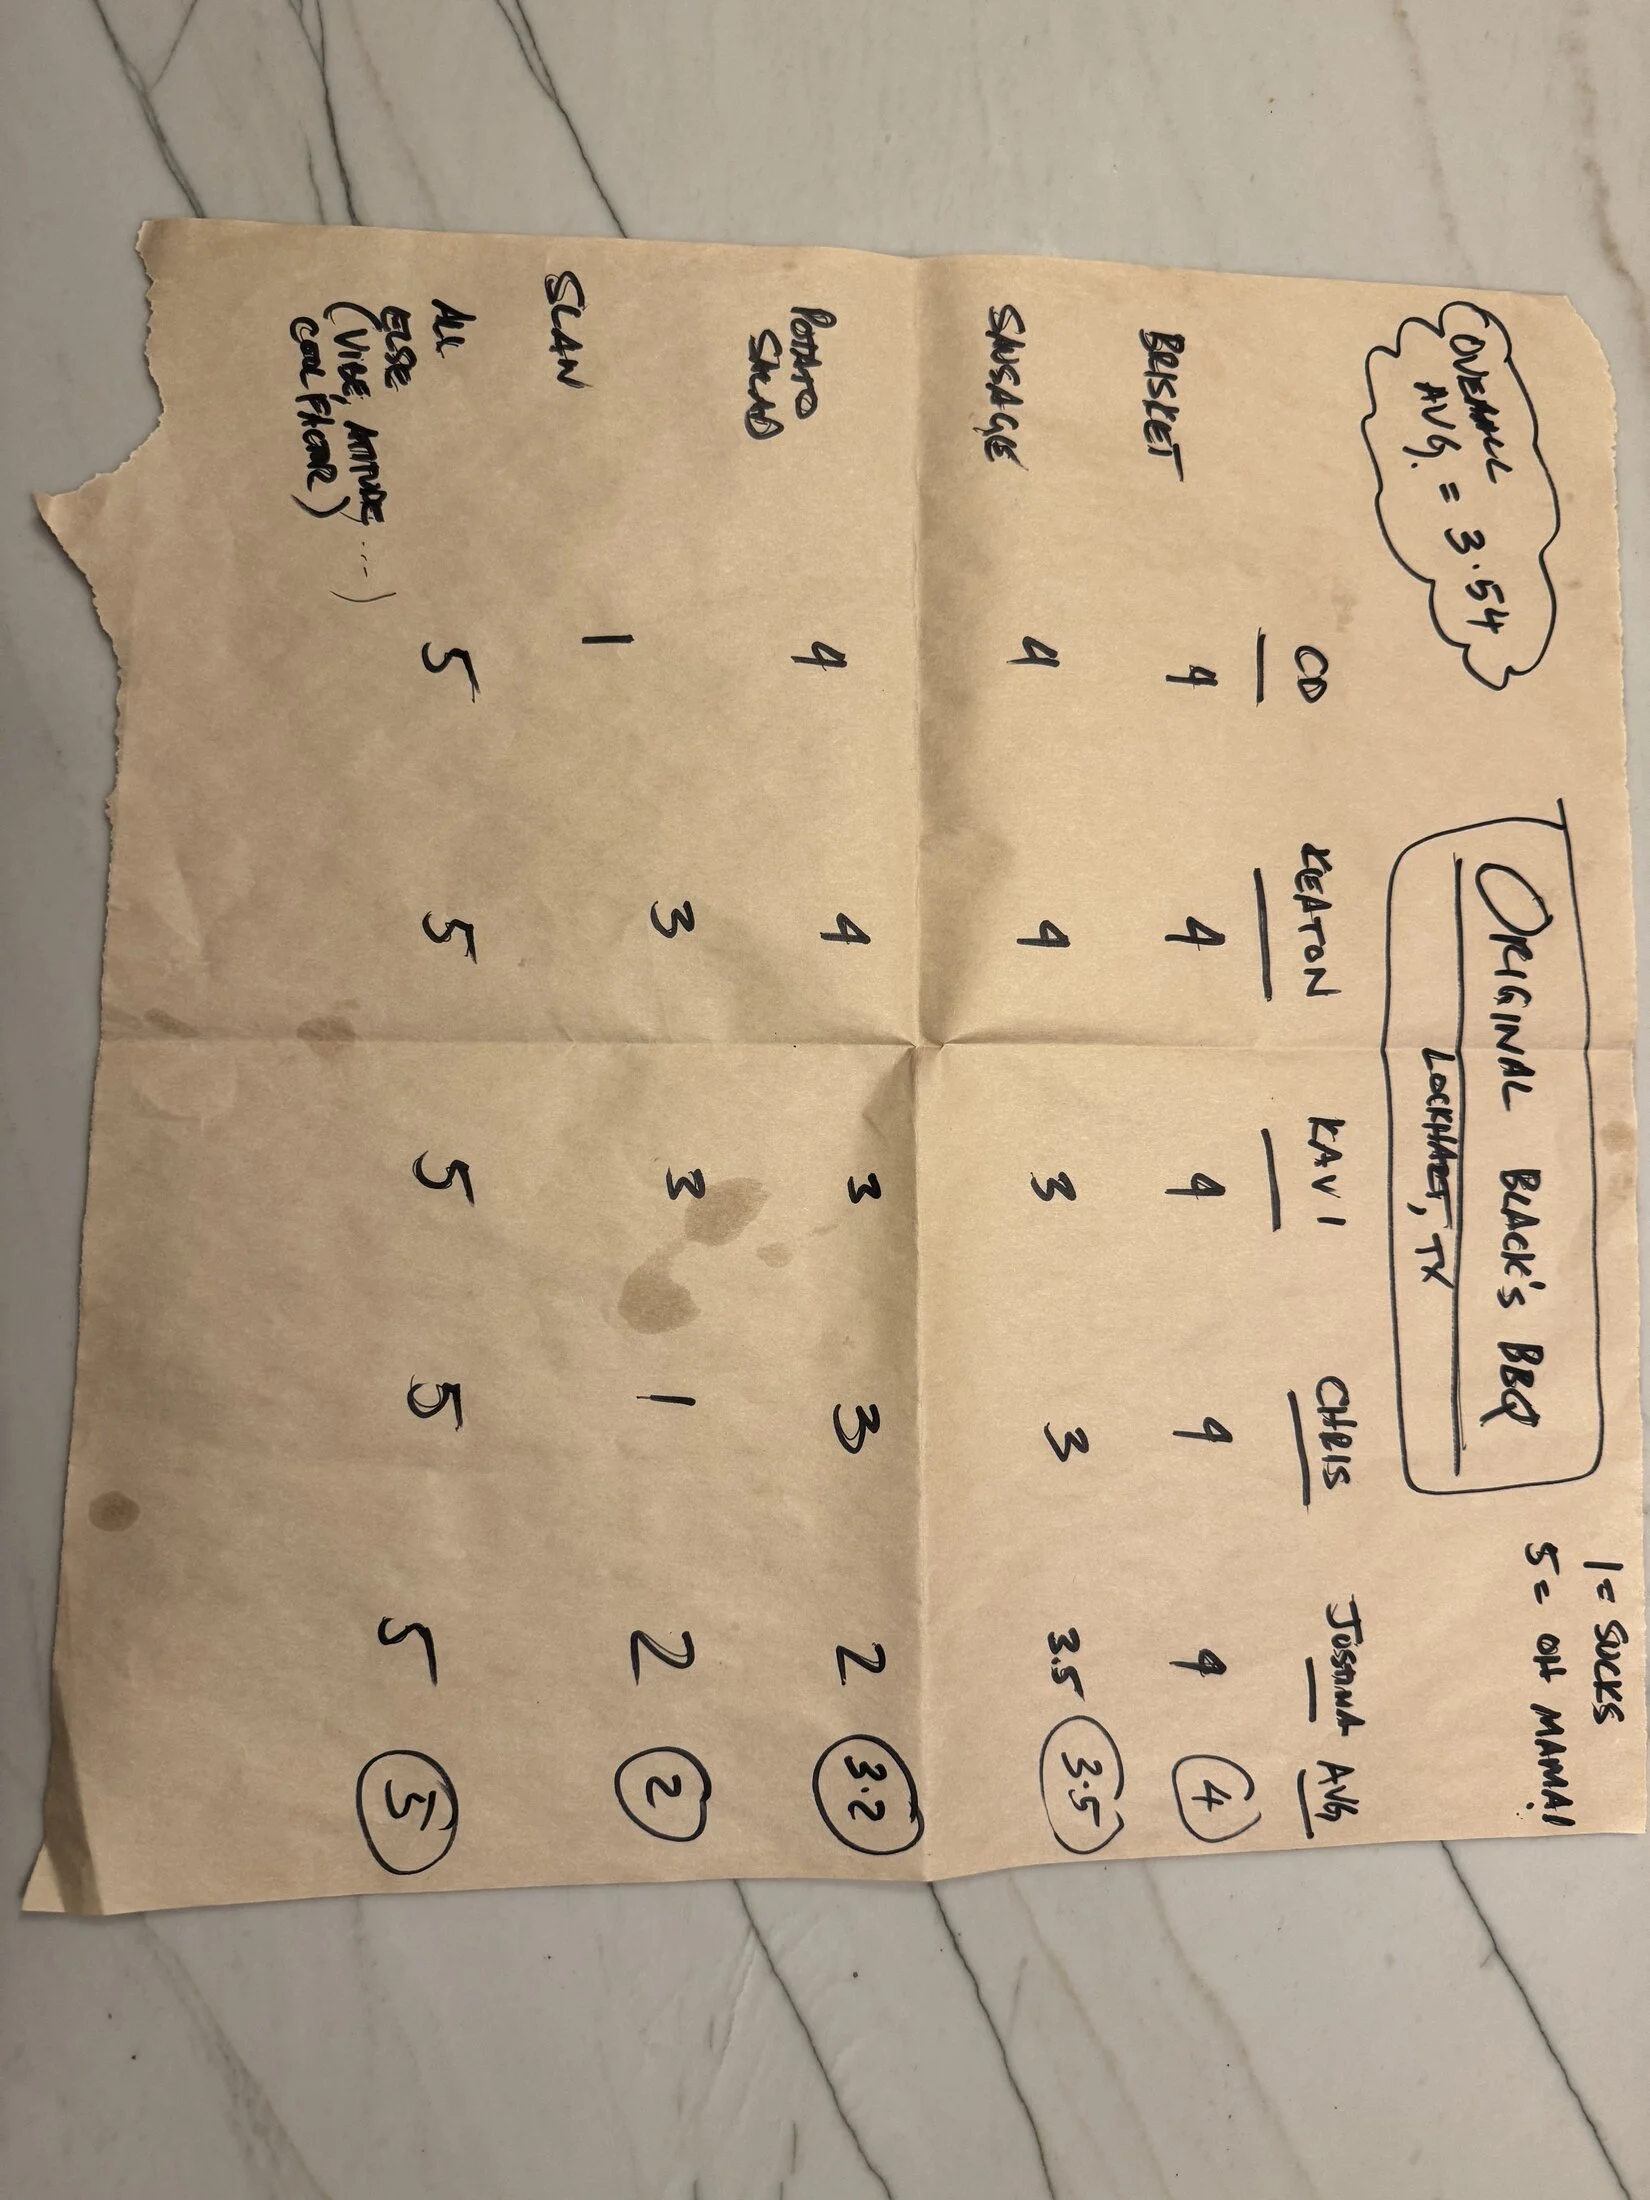 OVERALL
AVG. = 3.54
ORIGINAL BLACK'S BBQ
LOCKHART, TX
1 = SUCKS
5 = OH MAMA!
CD KEATON KAVI CHRIS JOSTNA AVG
BRISKET 4 4 4 4 4 4
SAUSAGE 4 4 3 3 3.5 3.5
POTATO
SALAD 4 4 3 3 2 3.2
SLAW 1 3 3 1 2 2
ALL
ELSE 5 5 5 5 5 5
(VIBE, ATTITUDE, ...)
COOL FACTOR)